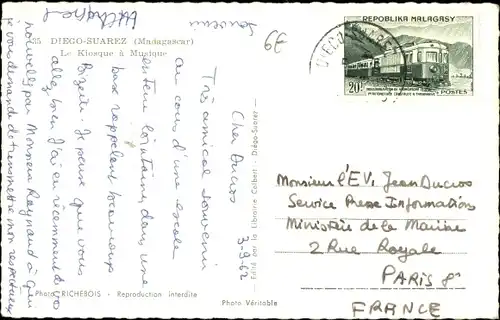 25 DIEGO-SUAREZ (Madagascar)
Le Kiosque à Musique
6€
REPOBLIKA MALAGASY
20F
POSTES
Cher Ducros
3-9-62
Très amical souvenir
au cours d'une escale
lointaine, dans une
qui me rappelent beaucoup
Bizerte. Je pense que vous
allez bien. J'ai eu récemment de vos
nouvelles par Monsieur Raynaud à qui
je vous demande de transmettre mon respectueux
souvenir
Monsieur l'E.V. Jean Ducros
Service Presse Informations
Ministère de la Marine
2 Rue Royale
PARIS 8e
FRANCE
Edité par la Librairie Colbert - Diégo-Suarez
Photo RICHEBOIS - Reproduction interdite
Photo Véritable